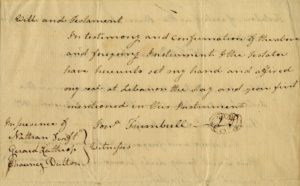 Will and Testament
In testimony and Confirmation of the above
and foregoing Instrument I the Testator
have hereunto set my hand and affixed
my seal at Lebanon the day and year first
mentioned in this Instrument
Jon.ͣ Trumbull
In presence of
Nathan
Gerard Lathrop
Chauncy Dutton
Witnesses